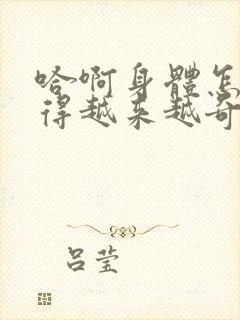 哈啊身體怎
得越来越奇
吕莹